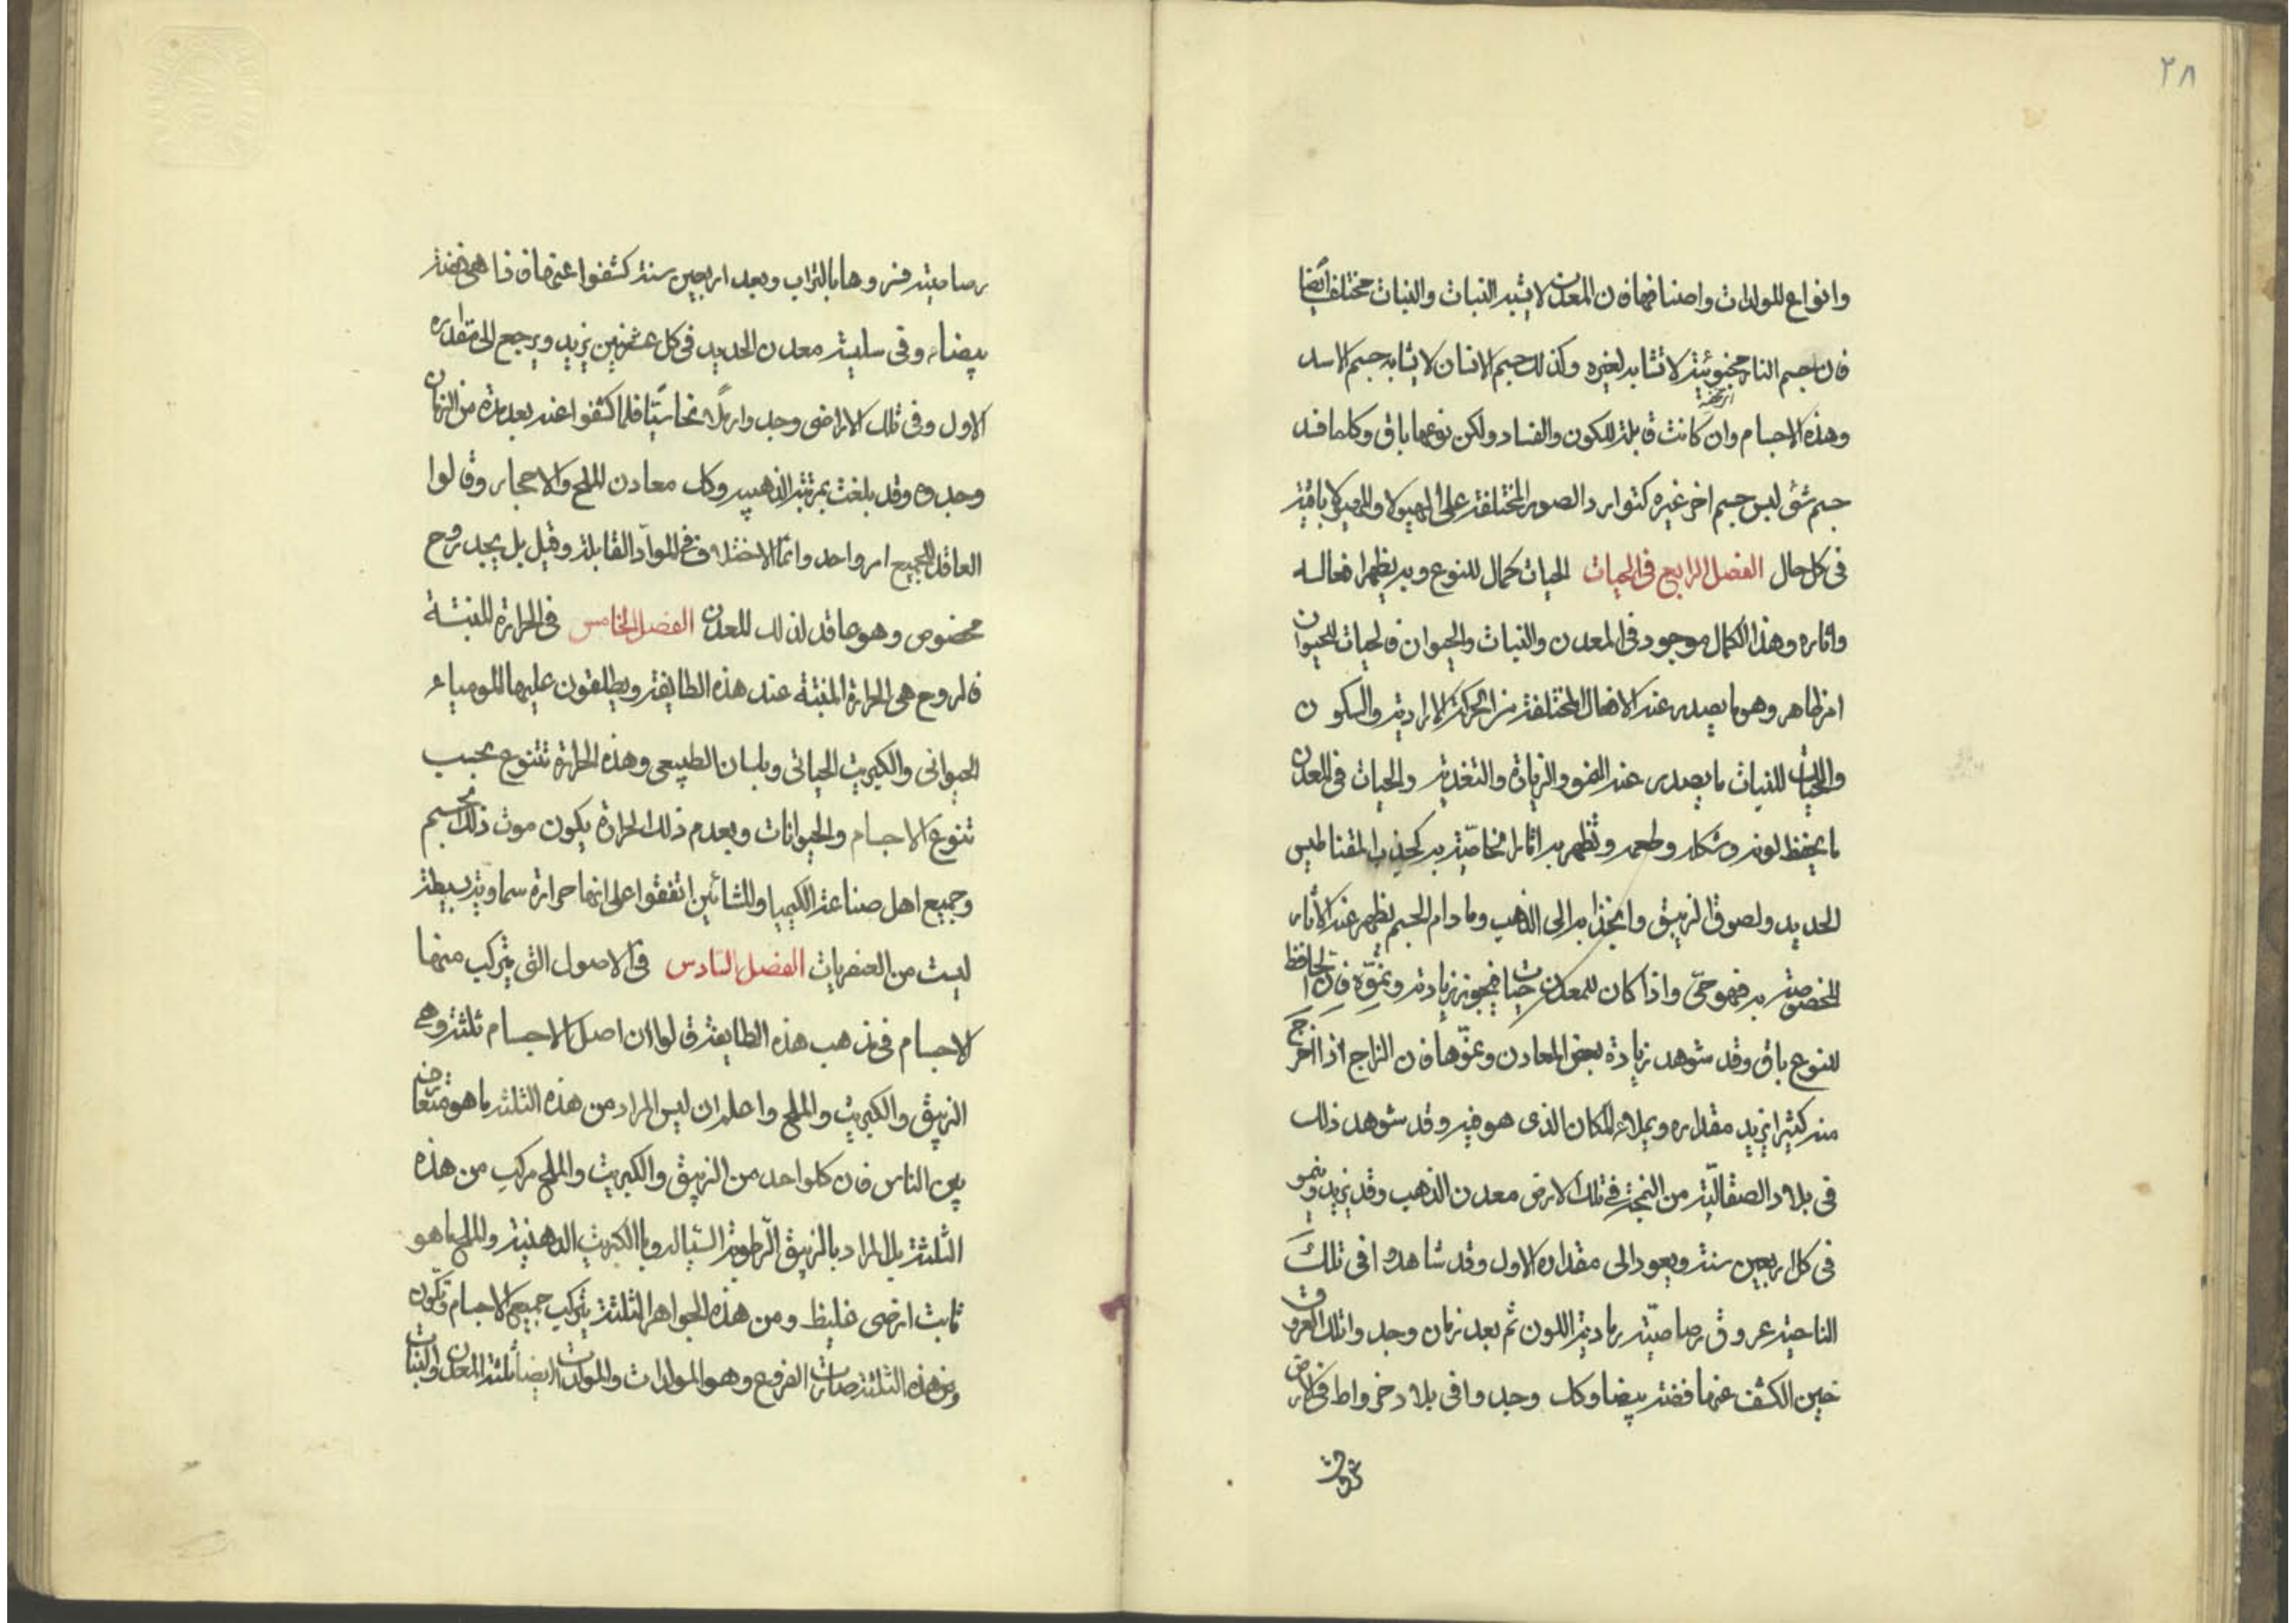 ٢٨
وانواع للمولدات واصنافها فان المعدن لا يشبه النبات والنبات مختلف ايضا
فان جسم النار مخبوئية لا تشابه لغيره وكذلك جسم الانسان لا يشابه جسم الاسد
وهذه الاجسام وان كانت قابلة للكون والفساد ولكن نوعها باق وكلما فسد
جسم شئ لبس جسم اخر غيره كتوارد الصور المختلفة على الهيولا والهيولا باقية
فى كل حال الفصل الرابع فى الحيات الحيات كمال للنوع وبه يظهر افعاله
واثاره وهذا الكمال موجود فى المعدن والنبات والحيوان فالحيات للحيوان
امر ظاهر وهو ما يصدر عنه الافعال المختلفة من الحركة الارادية والسكون
والحيات للنبات ما يصدر عنه النمو والزيادة والتغذية والحيات فى المعدن
ما يحفظ لونه وشكله وطعمه وتظهر به اثار خاصية به كجذب المقناطيس
الحديد ولصوق الزيبق وانجذابه الى الذهب وما دام الجسم يظهر عنه الأثار
المخصوصة به فهو حىّ واذا كان للمعدن حيات فيجوز زيادته ونموّه فان الحافظ
للنوع باق وقد شوهد زيادة بعض المعادن ونموّها فان الزاج اذا اخرج
منه كثيرا يزيد مقداره ويملاء المكان الذى هو فيه وقد شوهد ذلك
فى بلاد الصقالية من النجة فى تلك الارض معدن الذهب وقد يزيد وينمو
فى كل اربعين سنة ويعود الى مقداره الاول وقد شاهدوا فى تلك
الناحية عروق رصاصيّة رمادية اللون ثم بعد زمان وجدوا تلك العروق
حين الكشف عنها فضة بيضا وكك وجدوا فى بلاد خرواط فى الارض
عروق
رصاصية فنروها بالتراب وبعد اربعين سنة كشفوا عنها فاذا هى فضة
بيضاء وفى سليسة معدن الحديد فى كل عشر سنين يزيد ويرجع الى مقداره
الاول وفى تلك الاراضى وجدوا رملاً نحاسيًّا فلما كشفوا عنه بعد مدة من الزمان
وجدوه وقد بلغت بمرتبة الذهبيه وكك معادن الملح والاحجار وقالوا
العاقد للجميع امر واحد وانما الاختلاف فى الموادّ القابلة وقيل بل يجد روح
مخصوص وهو عاقد لذلك المعدن الفصل الخامس فى الحرارة المنبتة
فالروح هى الحرارة المنبتة عند هذه الطايفة ويطلقون عليها المومياء
الحيوانى والكبريت الحياتى وبلسان الطبيعى وهذه الحرارة تتنوع بحسب
تنوع الاجسام والحيوانات وبعدم ذلك الحرارة يكون موت ذلك الجسم
وجميع اهل صناعة الكيميا والمشائين اتفقوا على انها حرارة سماوية بسيطة
ليست من العنصريات الفصل السادس فى الاصول التى يتركب منها
الاجسام فى مذهب هذه الطايفة قالوا ان اصل الاجسام ثلثة وهى
الزيبق والكبريت والملح واعلم ان ليس المراد من هذه الثلثة ما هو متعارف
بين الناس فان كلواحد من الزيبق والكبريت والملح مركب من هذه
الثلثة بل المراد بالزيبق الرّطوبة السيّالة وبالكبريت الدهنية والملح ما هو
ثابت ارضى غليظ ومن هذه الجواهر الثلثة يتركب جميع الاجسام وتكون
ومن هذه الثلثة صارت الفروع وهو المولدات والمولدات ايضاً ثلثة المعدن والنبات